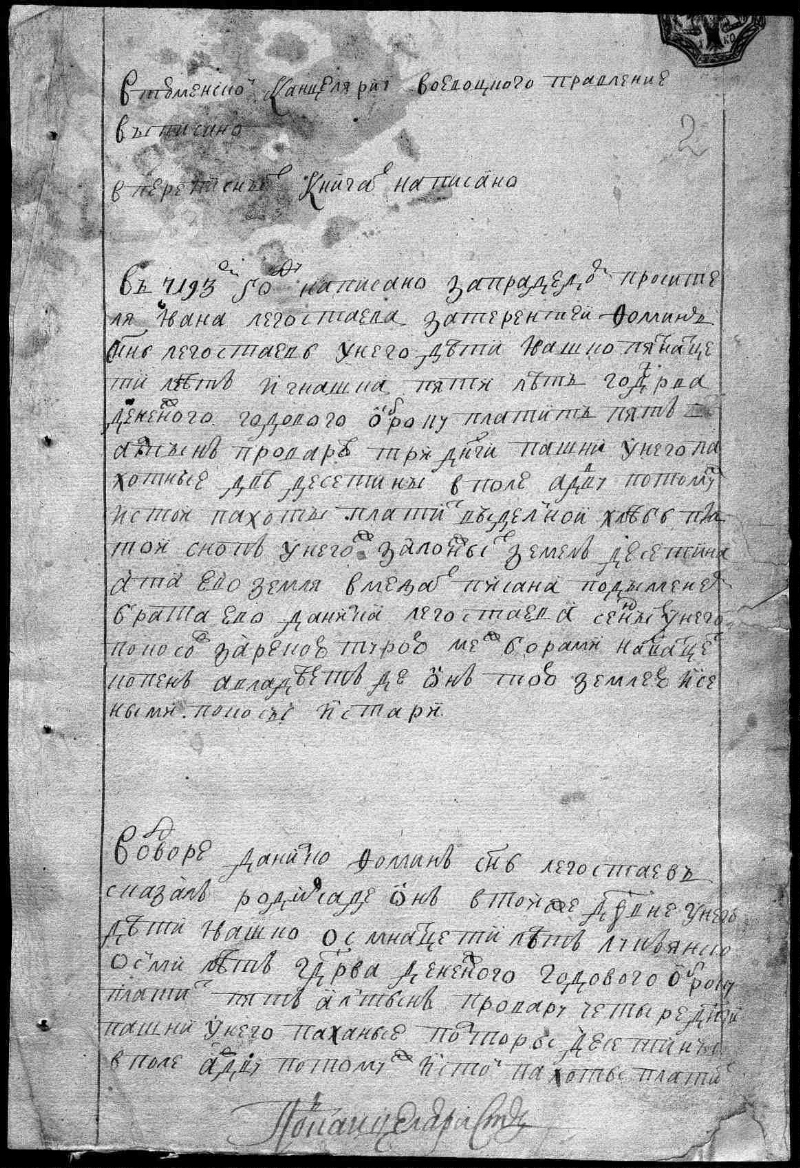 в тюменской канцелярии воеводцкого правление
выписано
в переписных книгах написано
2
въ 7193 году написано за прадедом просите
ля ивана легостаева за терентьем фоминъ
снъ легостаевъ у него дети ивашко пятнатце
ти летъ игнашка пяти летъ годрва
денежного годового оброку платитъ пять
алтынъ продаръ три днги пашни у него па
хотные две десетины в поле а вдву потому ж
и с той пахоты платит выделной хлебъ пя
той снопъ у него заложных земель десетина
а та ево земля в межах писана подымене
брата ево данила легостаева сенных у него
покосов заречное мег борами на
копенъ а владеетъ де онъ тою землею и се
ными покосы и стари
в дворе данилко фоминъ снъ легостаевъ
сказалъ родился де онъ в той же дрвне у него
дети ивашко осмнатцети летъ лукьянко
осми летъ гдрва денежного годового оброку
платит пять алтынъ продару четыре днги
пашни у него паханые полторы десетины
в поле а вдву потому ж и с той пахоты платит